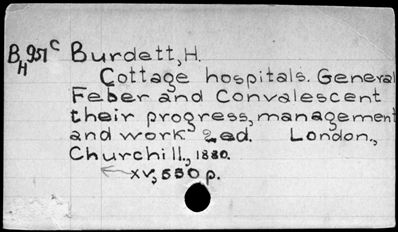 BH951c Burdett, H.
Cottage hospitals. General
Feber and Convalescent
their progress, management
and work 2ed. London.,
Churchill., 1880.
xv, 550 p.